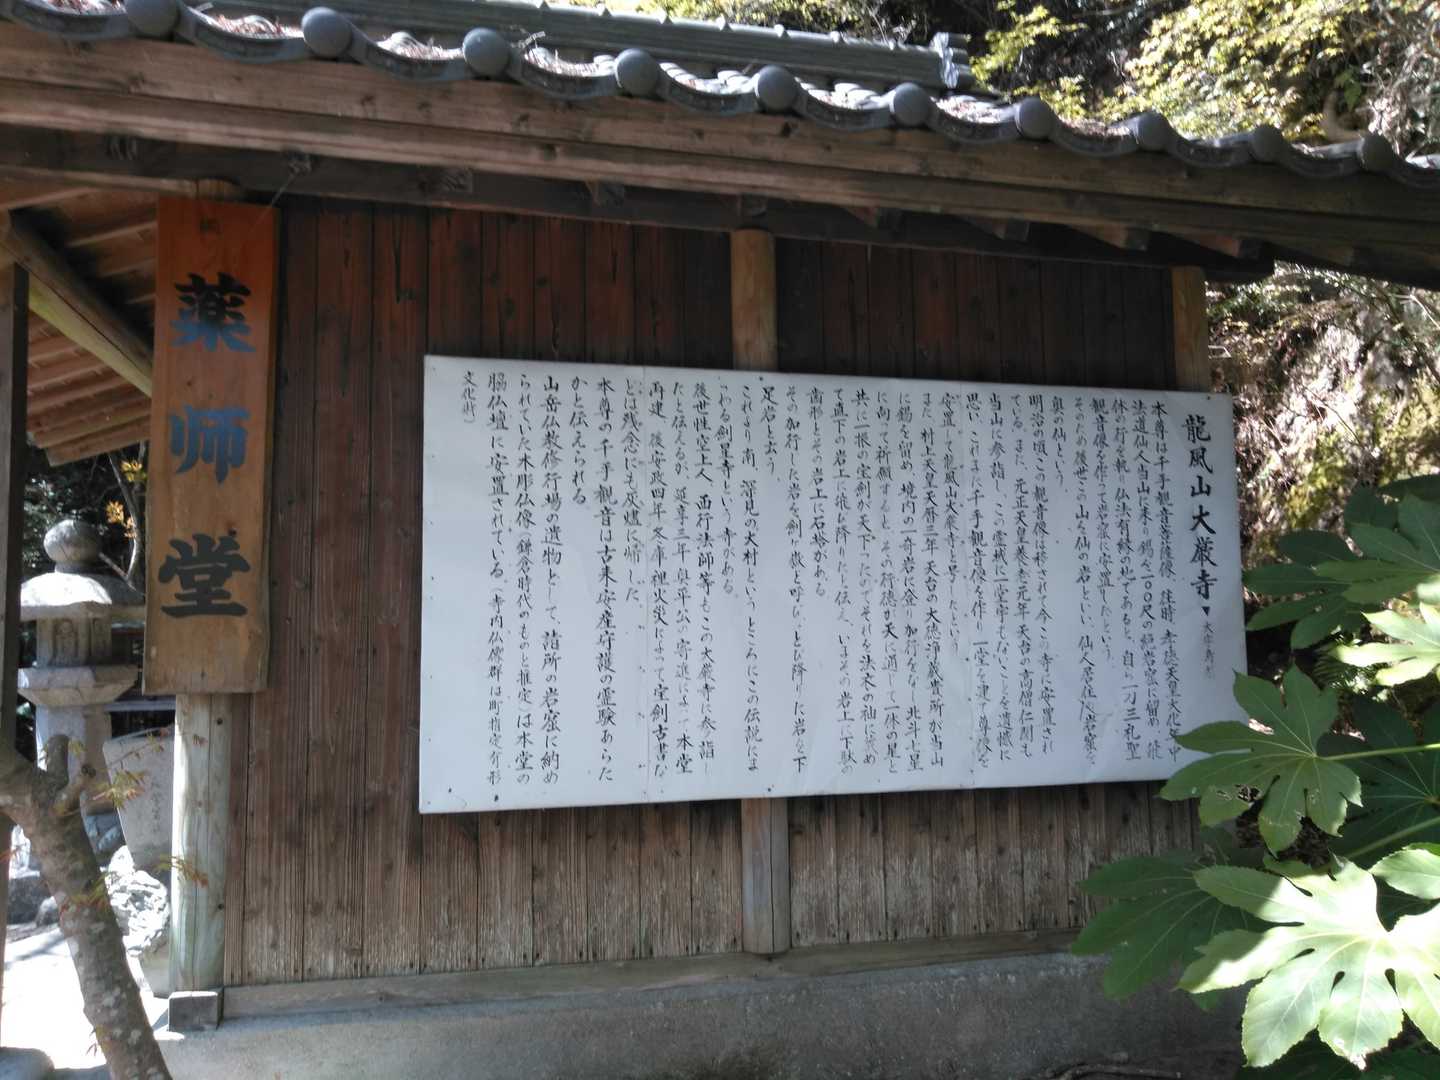 薬師堂
龍風山大厳寺
本尊は千手観音菩薩像、往時、孝徳天皇大化年中
法道仙人当山に来り錫を一〇〇尺の絶岩窟に留め、徒
休の行を執り仏法有縁の地であると、自ら一刀三礼聖
観音像を作って岩窟に安置したという。
そのため後世この山を仙の岩といい、仙人居住の岩窟を
奥の仙という。
明治の頃、この観音像は移されて今この寺に安置され
ている。また、元正天皇養老元年、天台の高僧仁聞も
当山に参詣し、この霊域に一堂宇もないことを遺憾に
思い、これまた千手観音像を作り、一堂を建て尊像を
安置して龍風山大厳寺と号したという。
また、村上天皇天暦三年、天台の大徳浄蔵貴所が当山
に錫を留め、境内の一奇岩に登り加行をなし、北斗七星
に向って祈願すると、その行徳が天に通じて一体の星と
共に一振の宝剣が天下ったのでそれを法衣の袖に収め
て直下の岩上に飛び降りたと伝え、いまその岩上に下駄の
歯形とその岩上に石塔がある。
その加行した岩を剣ヶ嶽と呼び、とび降りた岩を下
足岩と云う。
これより南、深見の大村というところにこの伝説にま
つわる剣星寺という寺がある。
後世性空上人、西行法師等もこの大厳寺に参り詣し
たと伝えるが、延享三年、奥平公の寄進によって本堂
再建、後安政四年冬庫裡火災によって宝剣古書な
どは残念にも灰燼に帰した。
本尊の千手観音は古来、安産守護の霊験あらた
かと伝えられる。
山岳仏教修行場の遺物として、詣所の岩窟に納め
られていた木彫仏像（鎌倉時代のものと推定）は本堂の
脇仏壇に安置されている。（寺内仏像群は町指定有形
文化財）